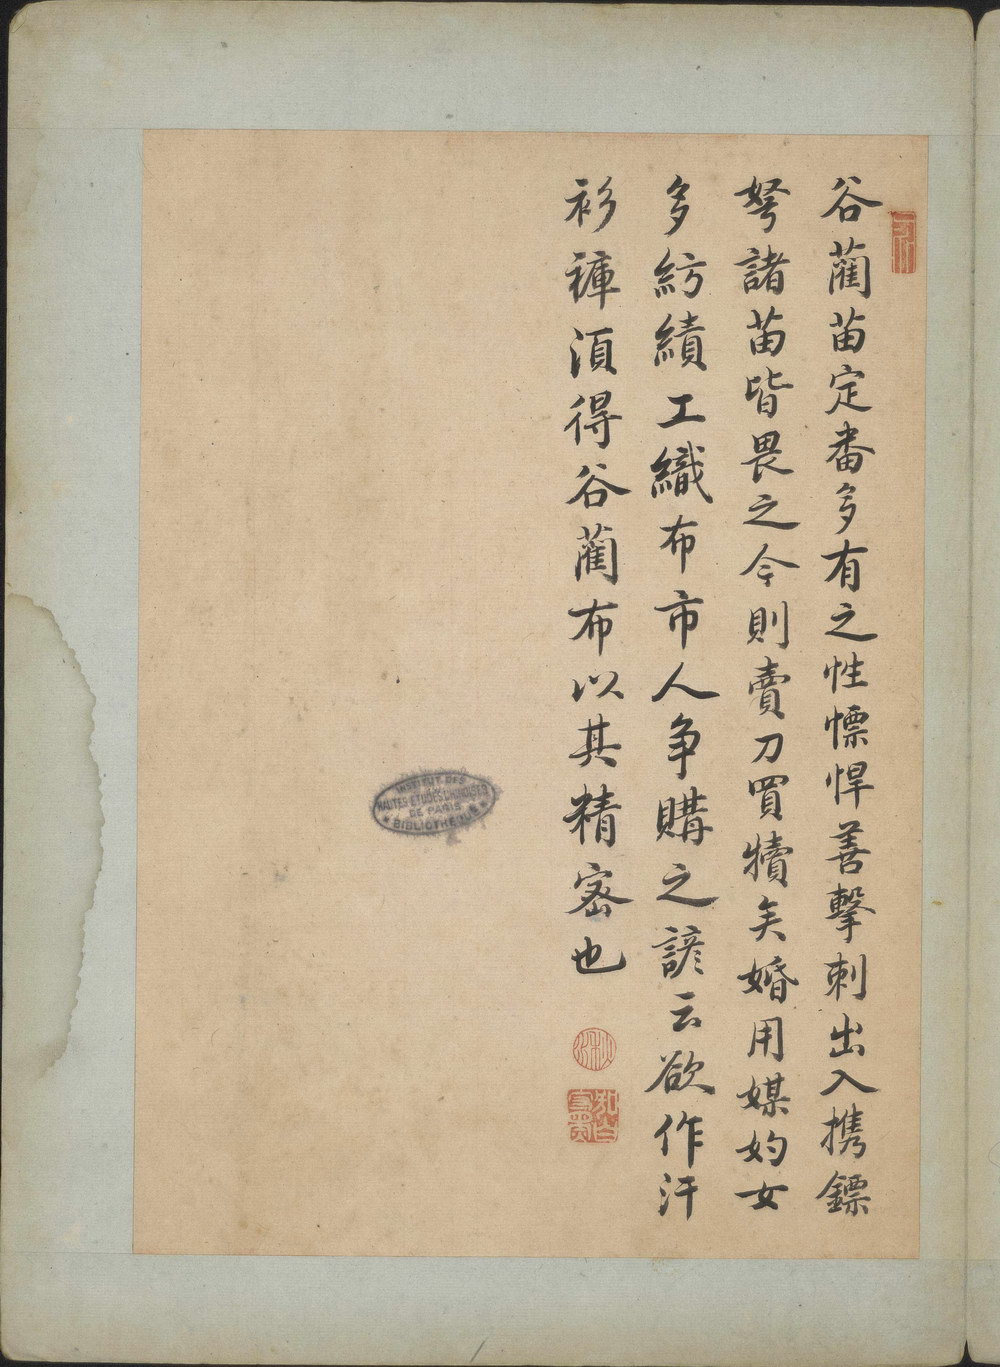 谷藺苗定番多有之性慓悍善擊刺出入携鏢
弩諸苗皆畏之今則賣刀買犢矣婚用媒妁女
多紡績工織布市人争購之諺云欲作汗
衫褲須得谷藺布以其精密也
INSTITUT DES
HAUTES ETUDES CHINOISES
DE PARIS
BIBLIOTHEQUE